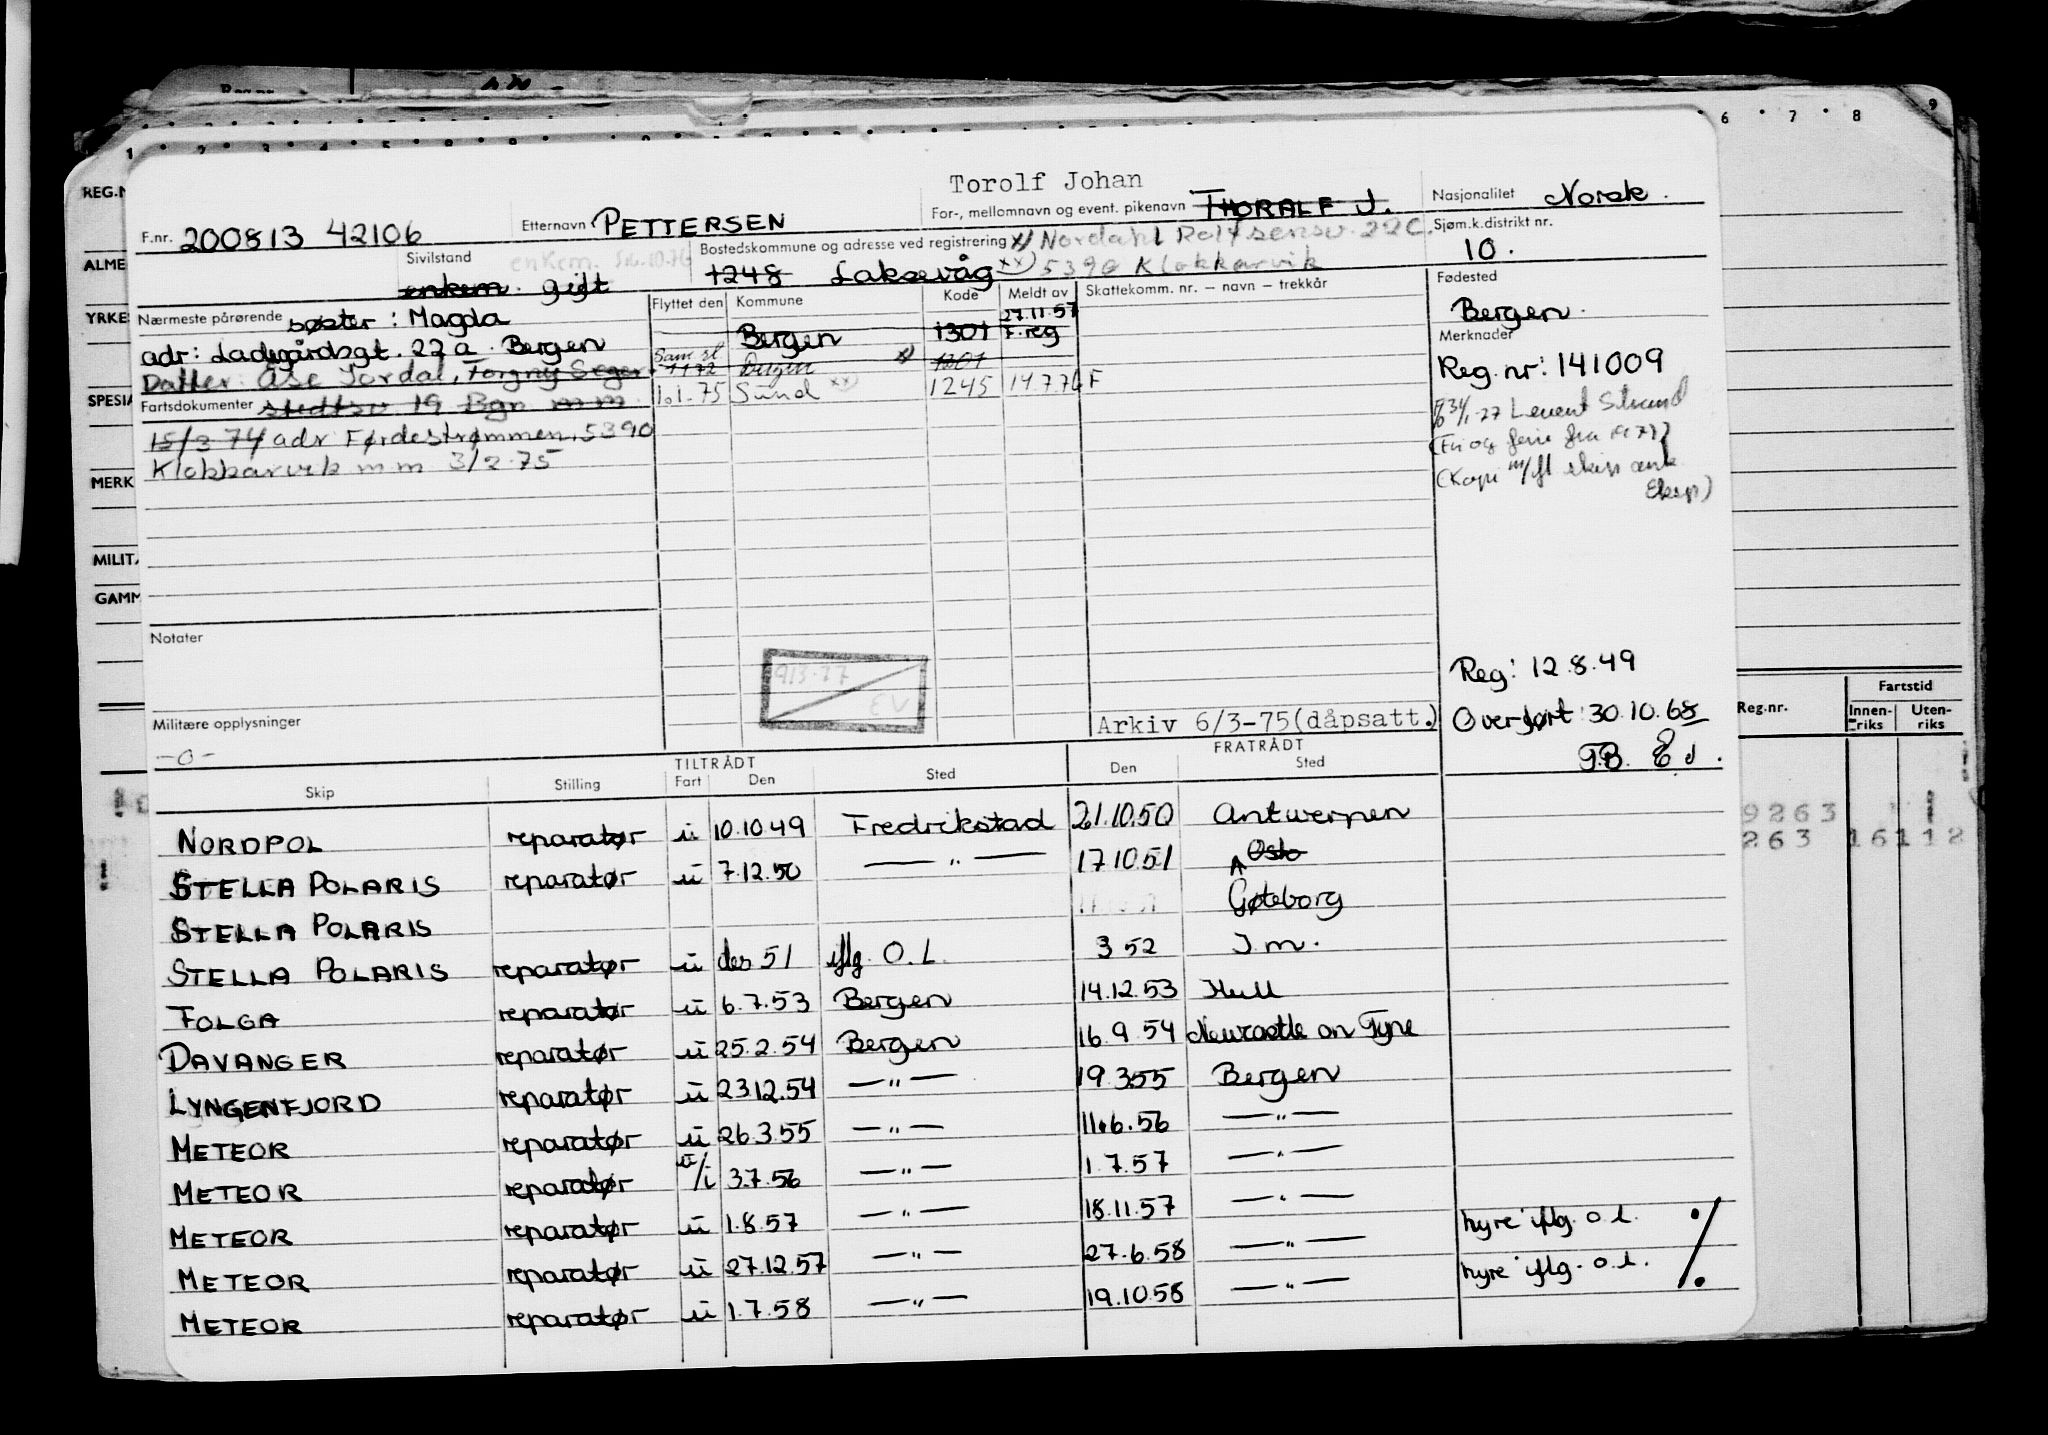 Reg.nr.
1 2 3 4 5 6 7 8 9
REG.N
ALME
YRKE
SPESIA
MERK
MILITA
GAMM
Torolf Johan
F.nr. 200813 42106 Etternavn PETTERSEN For-, mellomnavn og event. pikenavn THORALF J. Nasjonalitet Norsk.
Sivilstand enkem. gift enkem.
Bostedskommune og adresse ved registrering x) Nordahl Rolfsensv. 22C.
1248 Laksevåg xx) 5390 Klokkarvik
Sjøm.k.distrikt nr. 10.
Nærmeste pårørende søster: Magda
adr: Ladegårdsgt. 22a. Bergen
Datter: Åse Jordal, Torgny Seger
Fartsdokumenter stedtsv. 19 Bgn mm
15/3 74 adr Førdestrømmen, 5390
Klokkarvik mm 3/2-75
Flyttet den Kommune Kode Meldt av Skattekomm. nr. — navn — trekkår
Bergen 1301 27.11.57 F.reg
1172 Bergen x) 1301
1.1.75 Sund xx) 1245 14.7.76 F
Fødested
Bergen.
Merknader
Reg. nr: 141009
Notater
Militære opplysninger
-0-
Arkiv 6/3-75(dåpsatt.)
Reg: 12.8.49
Overført 30.10.68
Reg.nr. Fartstid
Innen-riks Uten-riks
9263
263 16112
TILTRÅDT FRATRÅDT
Skip Stilling Fart Den Sted Den Sted
NORDPOL reparatør u 10.10.49 Fredrikstad 21.10.50 Antwerpen
STELLA POLARIS reparatør u 7.12.50 — " — 17.10.51 Oslo
STELLA POLARIS Gøteborg
STELLA POLARIS reparatør u des 51 iflg. O.L. 3 52 J.m.
FOLGA reparatør u 6.7.53 Bergen 14.12.53 Hull
DAVANGER reparatør u 25.2.54 Bergen 16.9.54 Newcastle on Tyne
LYNGENFJORD reparatør u 23.12.54 — " — 19.3.55 Bergen
METEOR reparatør u 26.3.55 — " — 11.6.56 — " —
METEOR reparatør u/i 3.7.56 — " — 1.7.57 — " —
METEOR reparatør u 1.8.57 — " — 18.11.57 — " —
METEOR reparatør u 27.12.57 — " — 27.6.58 — " — hyre iflg. o.l.
METEOR reparatør u 1.7.58 — " — 19.10.58 — " — hyre iflg. o.l.